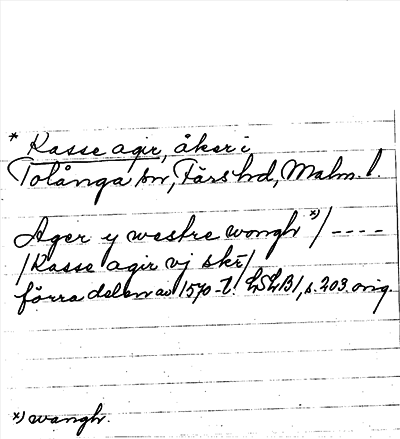 * Kasse agir, åker i
Tolånga sn, Färs hd, Malm. l.
Ager y westre wongh *) / ----
/ Kasse agir vj skr /
förra delen av 1570-t. LSLB 1, s. 203. orig.
*) wangh.